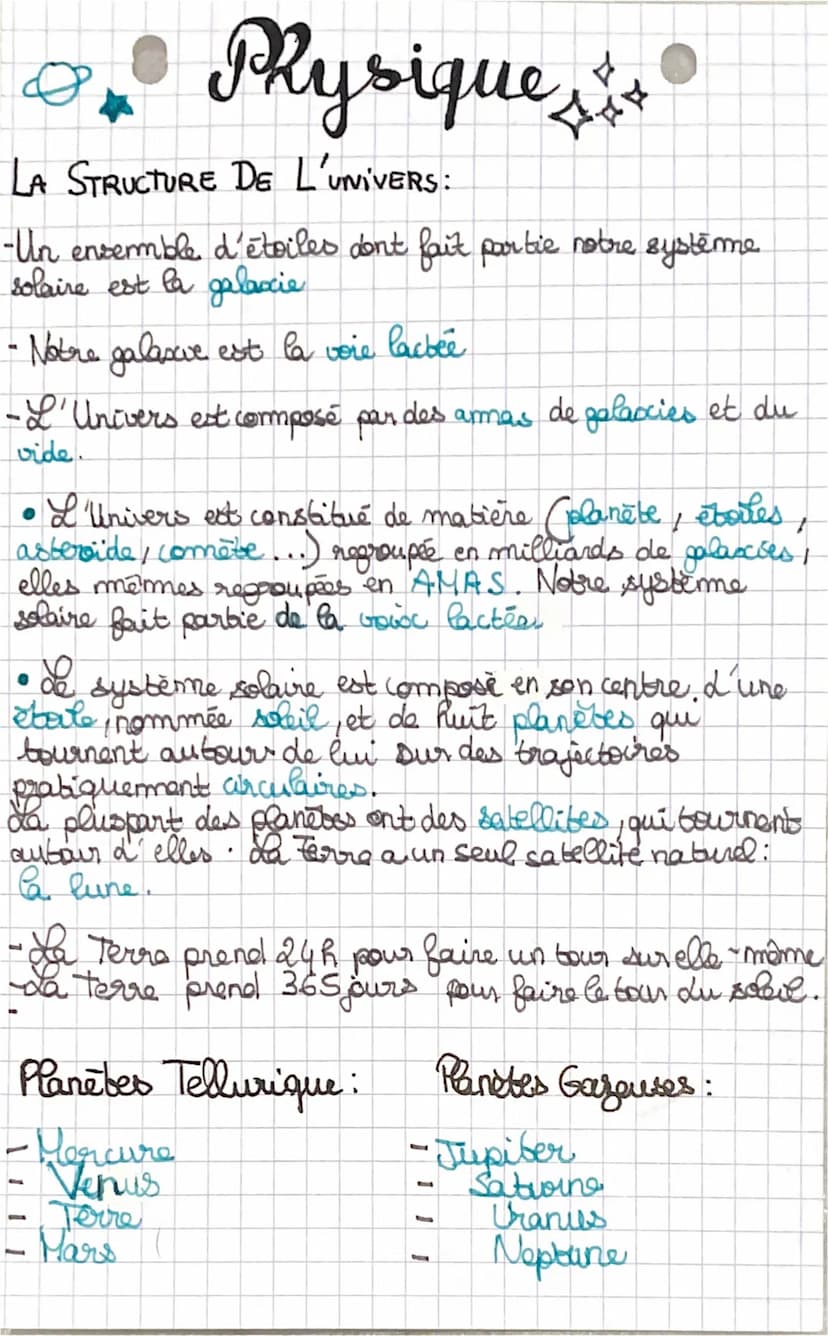 Physique
LA STRUCTURE DE L'UNIVERS:
-Un ensemble d'étoiles dont fait partie notre système
solaire est la galaxie
- Notre galaxie est la voie lactée
-L'Univers est composé par des amas de galaxies et du
vide.
• L'Univers est constitué de matière (planète, étoiles,
asteroïde, comète ...) regroupée en milliards de galaxies,
elles mêmes regroupées en AMAS. Notre système
solaire fait partie de la lactée
• Le système solaire est composé en son centre, d'une
étoile, nommée soleil, et de huit planètes qui
tournent autour de lui sur des trajectoires
pratiquement circulaires.
La pluspart des planètes ont des satellites, qui tournent
autour d'elles. La Terre a un seul satellite naturel:
la lune.
-La Terre prend 24h pour faire un tour sur elle-même
-La terre prend 365jours pour faire le tour du soleil.
-
Planètes Tellurique: Planètes Gazeuses:
- Mercure - Jupiter
- Venus - Saturne
- Terre - Uranus
- Mars - Neptune